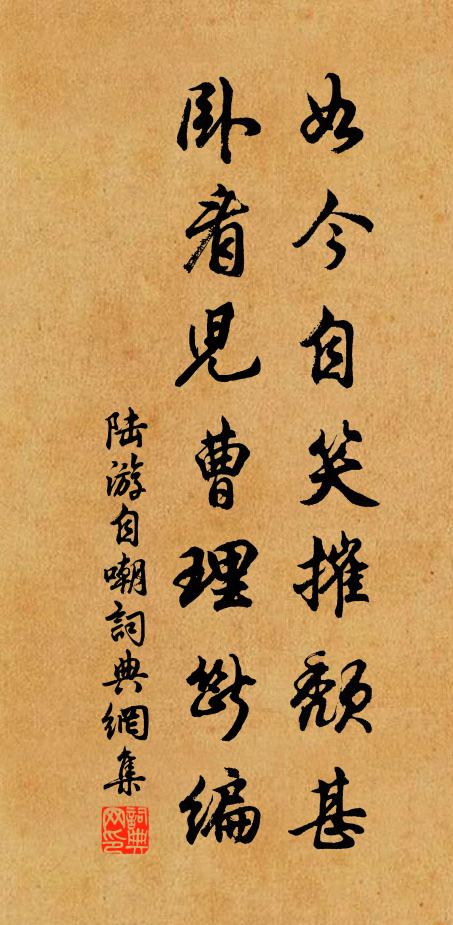 如今自笑摧颓甚
卧看兒曹理断编
陆游自嘲詞典網集
詞典网印